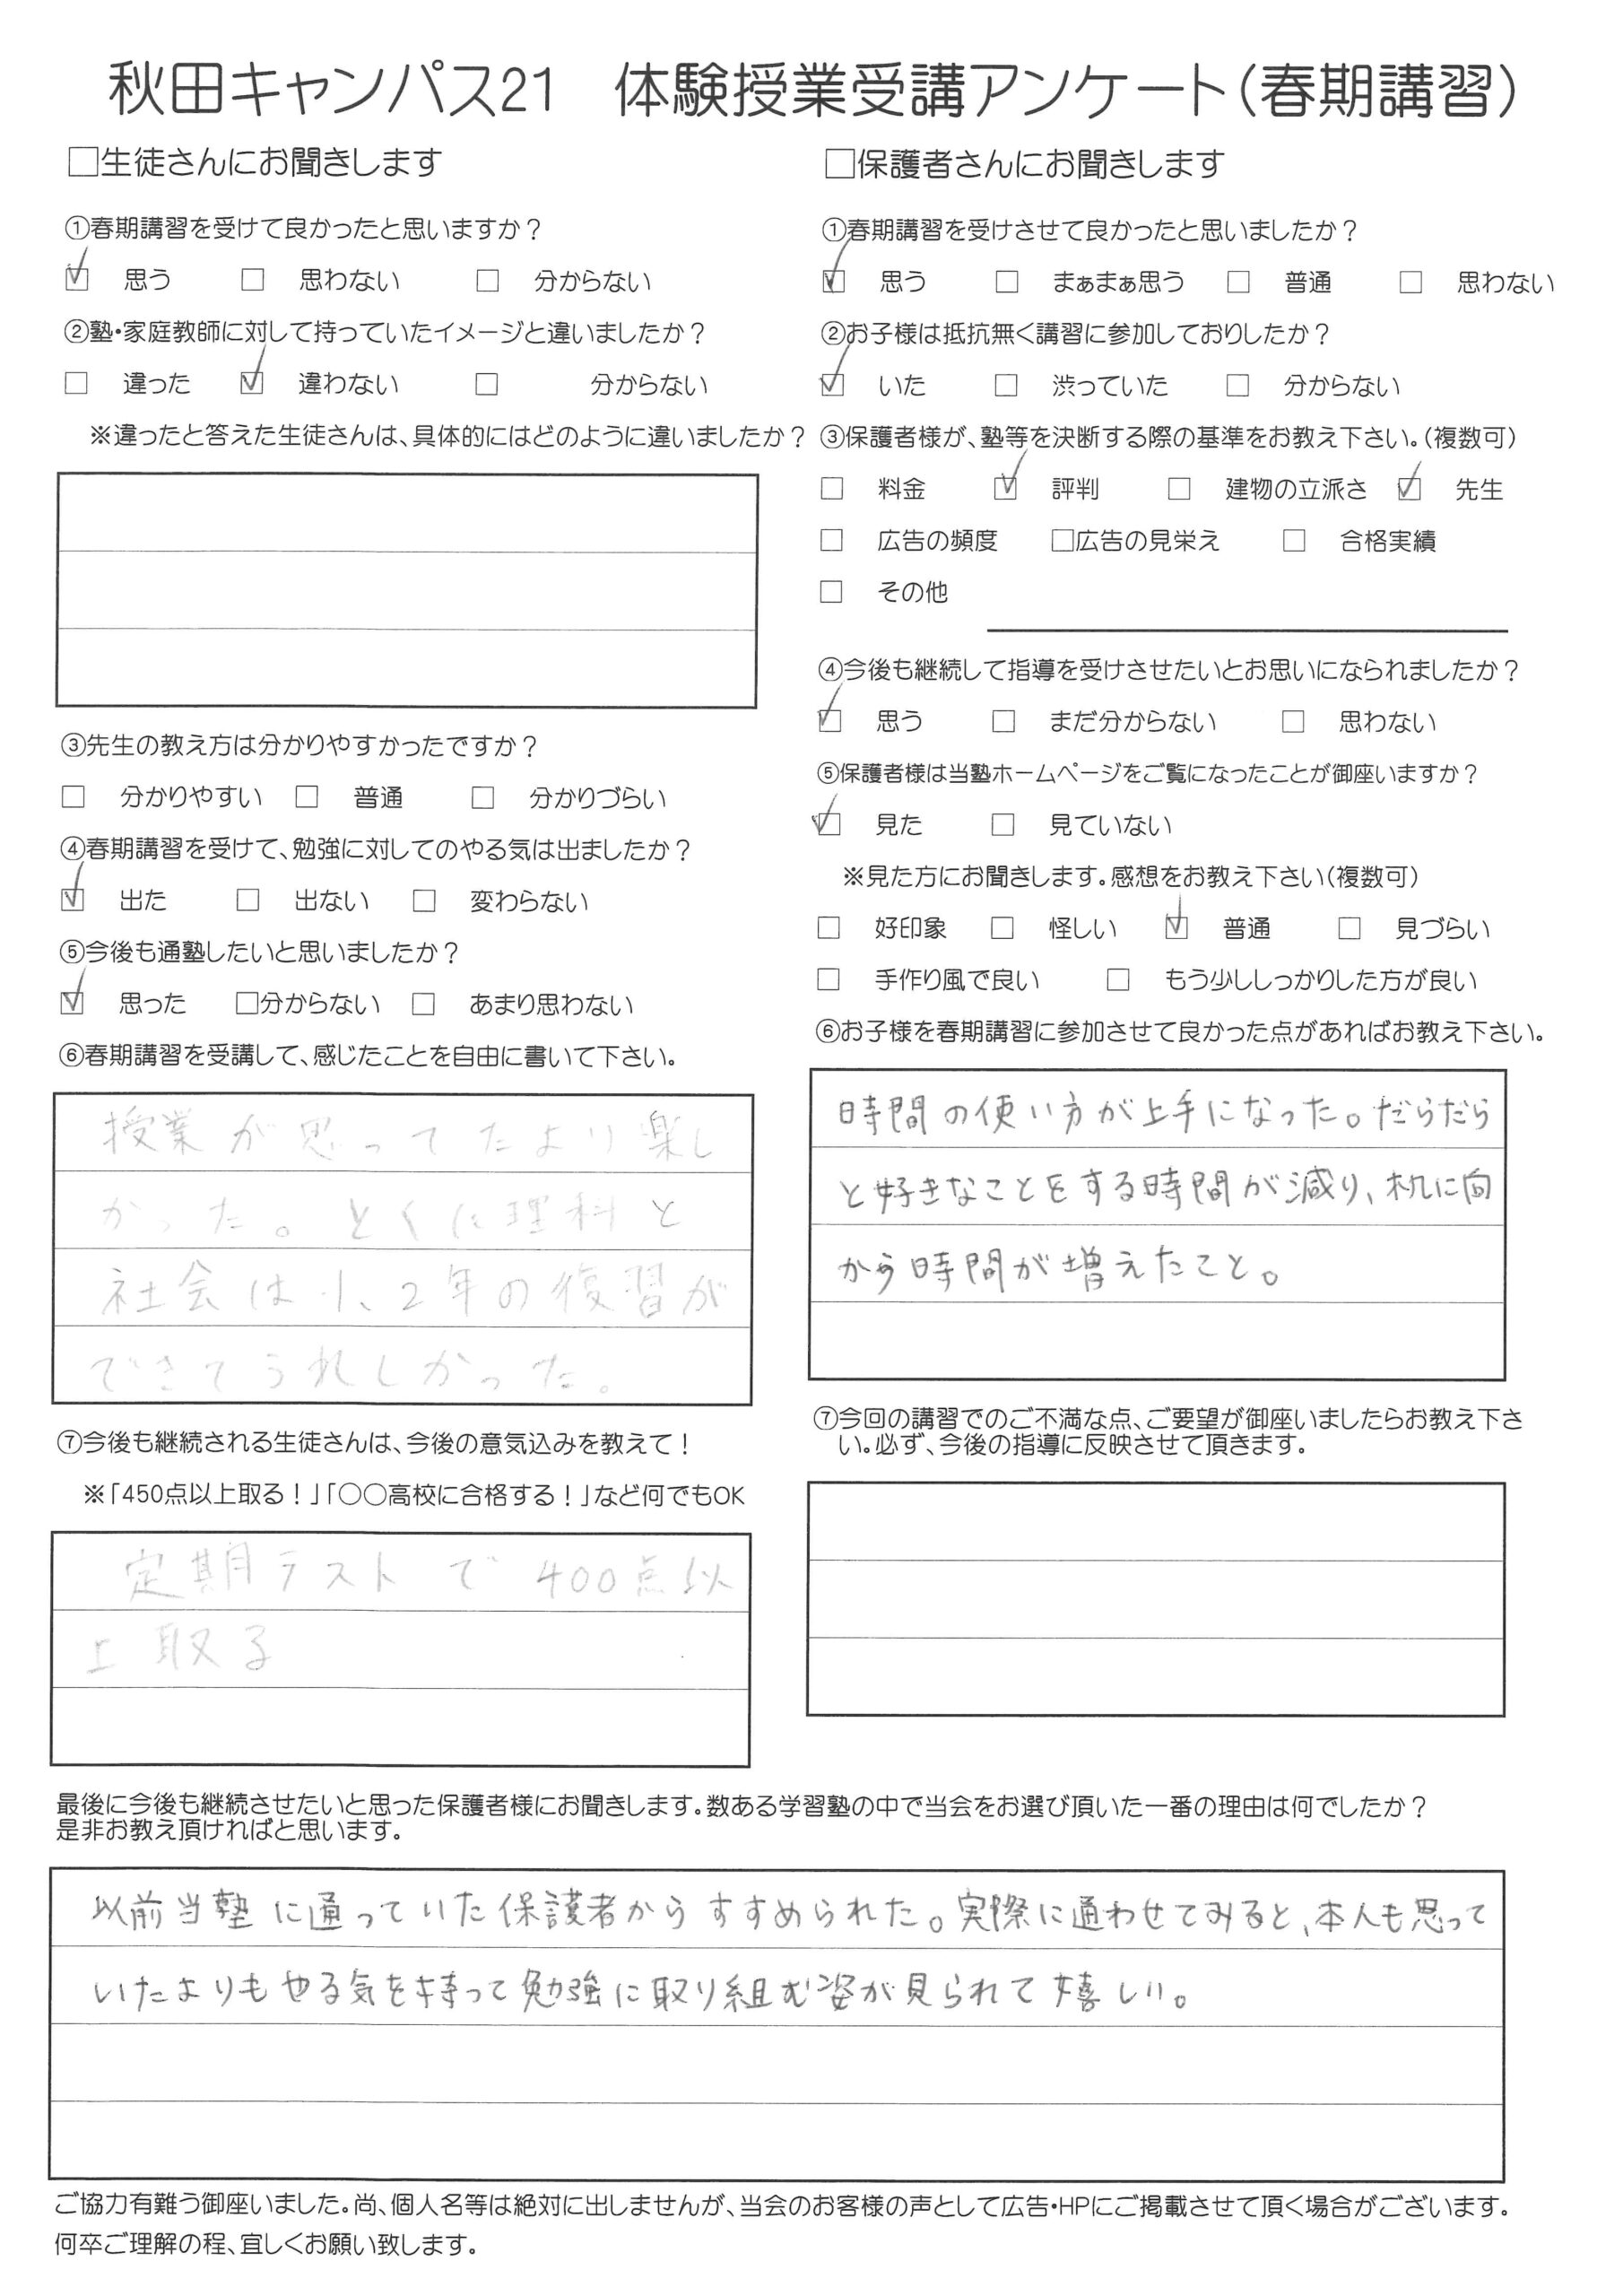 秋田キャンパス21　体験授業受講アンケート（春期講習）
□生徒さんにお聞きします
①春期講習を受けて良かったと思いますか？
☑　思う　□　思わない　□　分からない
②塾・家庭教師に対して持っていたイメージと違いましたか？
□　違った　☑　違わない　□　分からない
※違ったと答えた生徒さんは、具体的にはどのように違いましたか？
③先生の教え方は分かりやすかったですか？
□　分かりやすい　□　普通　□　分かりづらい
④春期講習を受けて、勉強に対してのやる気は出ましたか？
☑　出た　□　出ない　□　変わらない
⑤今後も通塾したいと思いましたか？
☑　思った　□分からない　□　あまり思わない
⑥春期講習を受講して、感じたことを自由に書いて下さい。
授業が思ってたより楽し
かった。とくに理科と
社会は1、2年の復習が
できてうれしかった。
⑦今後も継続される生徒さんは、今後の意気込みを教えて！
※「450点以上取る！」「〇〇高校に合格する！」など何でもOK
定期テストで400点以
上取る
□保護者さんにお聞きします
①春期講習を受けさせて良かったと思いましたか？
☑　思う　□　まぁまぁ思う　□　普通　□　思わない
②お子様は抵抗無く講習に参加しておりしたか？
☑　いた　□　渋っていた　□　分からない
③保護者様が、塾等を決断する際の基準をお教え下さい。（複数可）
□　料金　☑　評判　□　建物の立派さ　☑　先生
□　広告の頻度　□広告の見栄え　□　合格実績
□　その他
④今後も継続して指導を受けさせたいとお思いになられましたか？
☑　思う　□　まだ分からない　□　思わない
⑤保護者様は当塾ホームページをご覧になったことが御座いますか？
☑　見た　□　見ていない
※見た方にお聞きします。感想をお教え下さい（複数可）
□　好印象　□　怪しい　☑　普通　□　見づらい
□　手作り風で良い　□　もう少ししっかりした方が良い
⑥お子様を春期講習に参加させて良かった点があればお教え下さい。
時間の使い方が上手になった。だらだら
と好きなことをする時間が減り、机に向
かう時間が増えたこと。
⑦今回の講習でのご不満な点、ご要望が御座いましたらお教え下さ
い。必ず、今後の指導に反映させて頂きます。
最後に今後も継続させたいと思った保護者様にお聞きします。数ある学習塾の中で当会をお選び頂いた一番の理由は何でしたか？
是非お教え頂ければと思います。
以前当塾に通っていた保護者からすすめられた。実際に通わせてみると、本人も思って
いたよりもやる気を持って勉強に取り組む姿が見られて嬉しい。
ご協力有難う御座いました。尚、個人名等は絶対に出しませんが、当会のお客様の声として広告・HPにご掲載させて頂く場合がございます。
何卒ご理解の程、宜しくお願い致します。